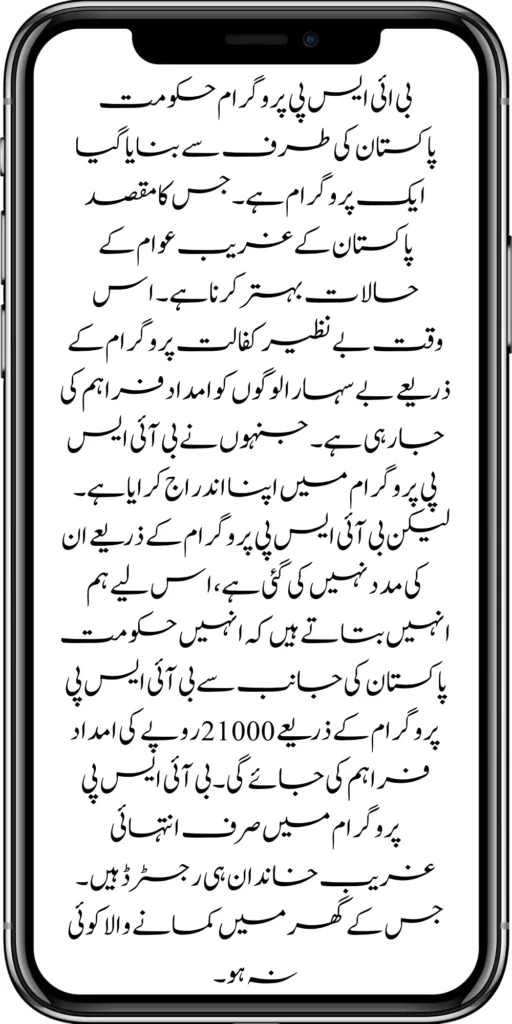 بی ائی ایس پی پروگرام حکومت
پاکستان کی طرف سے بنایا گیا
ایک پروگرام ہے۔ جس کا مقصد
پاکستان کے غریب عوام کے
حالات بہتر کرنا ہے۔ اس
وقت بے نظیر کفالت پروگرام کے
ذریعے بے سہارا لوگوں کو امداد فراہم کی
جا رہی ہے۔ جنہوں نے بی آئی ایس
پی پروگرام میں اپنا اندراج کرایا ہے۔
لیکن بی آئی ایس پی پروگرام کے ذریعے ان
کی مدد نہیں کی گئی ہے، اس لیے ہم
انہیں بتاتے ہیں کہ انہیں حکومت
پاکستان کی جانب سے بی آئی ایس پی
پروگرام کے ذریعے 21000 روپے کی امداد
فراہم کی جائے گی۔ بی آئی ایس پی
پروگرام میں صرف انتہائی
غریب خاندان ہی رجسٹرڈ ہیں۔
جس کے گھر میں کمانے والا کوئی
نہ ہو۔